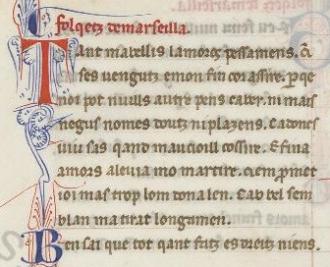 Folqetz de marseilla.
Tant mabellis lamoros pessamens. Qi
ses vengutz e mon fin cor assire. p qe
noi pot nuills autre pens caber. ni mais
negus nomes doutz ni plazens. Cadones
viu sas quand maucioill cossire. E fina
amors aleuia mo martire. qem promet
ioi mas trop lom dona len. Cab bel sem
blan ma tirat longamen.
Ben sai que tot qant fatz es dreitz niens.